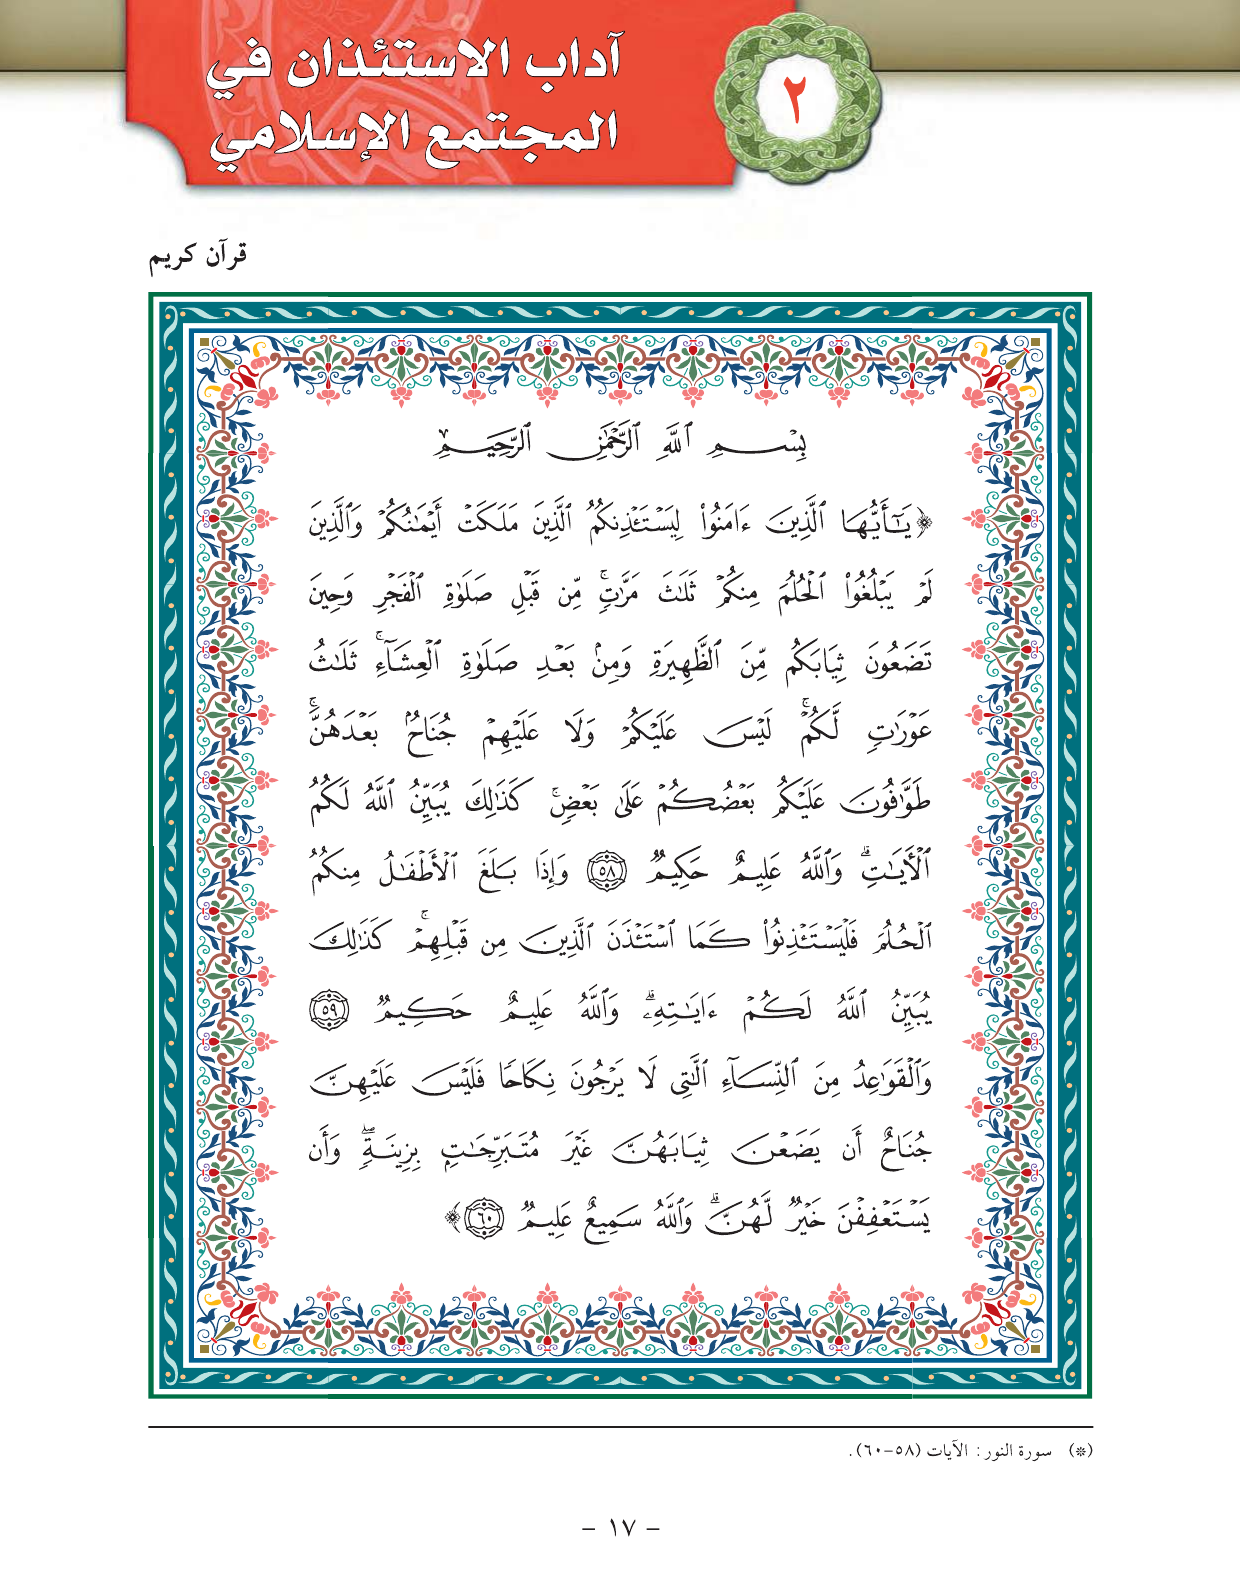 ٢
آداب الاستئذان في
المجتمع الإسلامي
قرآن كريم
بِسْمِ ٱللَّهِ ٱلرَّحْمَٰنِ ٱلرَّحِيمِ
﴿يَٰٓأَيُّهَا ٱلَّذِينَ ءَامَنُوا۟ لِيَسْتَـْٔذِنكُمُ ٱلَّذِينَ مَلَكَتْ أَيْمَٰنُكُمْ وَٱلَّذِينَ
لَمْ يَبْلُغُوا۟ ٱلْحُلُمَ مِنكُمْ ثَلَٰثَ مَرَّٰتٍۢ ۚ مِّن قَبْلِ صَلَوٰةِ ٱلْفَجْرِ وَحِينَ
تَضَعُونَ ثِيَابَكُم مِّنَ ٱلظَّهِيرَةِ وَمِنۢ بَعْدِ صَلَوٰةِ ٱلْعِشَآءِ ۚ ثَلَٰثُ
عَوْرَٰتٍۢ لَّكُمْ ۚ لَيْسَ عَلَيْكُمْ وَلَا عَلَيْهِمْ جُنَاحٌۢ بَعْدَهُنَّ ۚ
طَوَّٰفُونَ عَلَيْكُم بَعْضُكُمْ عَلَىٰ بَعْضٍۢ ۚ كَذَٰلِكَ يُبَيِّنُ ٱللَّهُ لَكُمُ
ٱلْـَٔايَٰتِ ۗ وَٱللَّهُ عَلِيمٌ حَكِيمٌۭ ٥٨ وَإِذَا بَلَغَ ٱلْأَطْفَٰلُ مِنكُمُ
ٱلْحُلُمَ فَلْيَسْتَـْٔذِنُوا۟ كَمَا ٱسْتَـْٔذَنَ ٱلَّذِينَ مِن قَبْلِهِمْ ۚ كَذَٰلِكَ
يُبَيِّنُ ٱللَّهُ لَكُمْ ءَايَٰتِهِۦ ۗ وَٱللَّهُ عَلِيمٌ حَكِيمٌۭ ٥٩
وَٱلْقَوَٰعِدُ مِنَ ٱلنِّسَآءِ ٱلَّٰتِى لَا يَرْجُونَ نِكَاحًۭا فَلَيْسَ عَلَيْهِنَّ
جُنَاحٌ أَن يَضَعْنَ ثِيَابَهُنَّ غَيْرَ مُتَبَرِّجَٰتٍۭ بِزِينَةٍۢ ۖ وَأَن
يَسْتَعْفِفْنَ خَيْرٌۭ لَّهُنَّ ۗ وَٱللَّهُ سَمِيعٌ عَلِيمٌۭ ٦٠﴾
(*) سورة النور: الآيات (٥٨-٦٠).
- ١٧ -